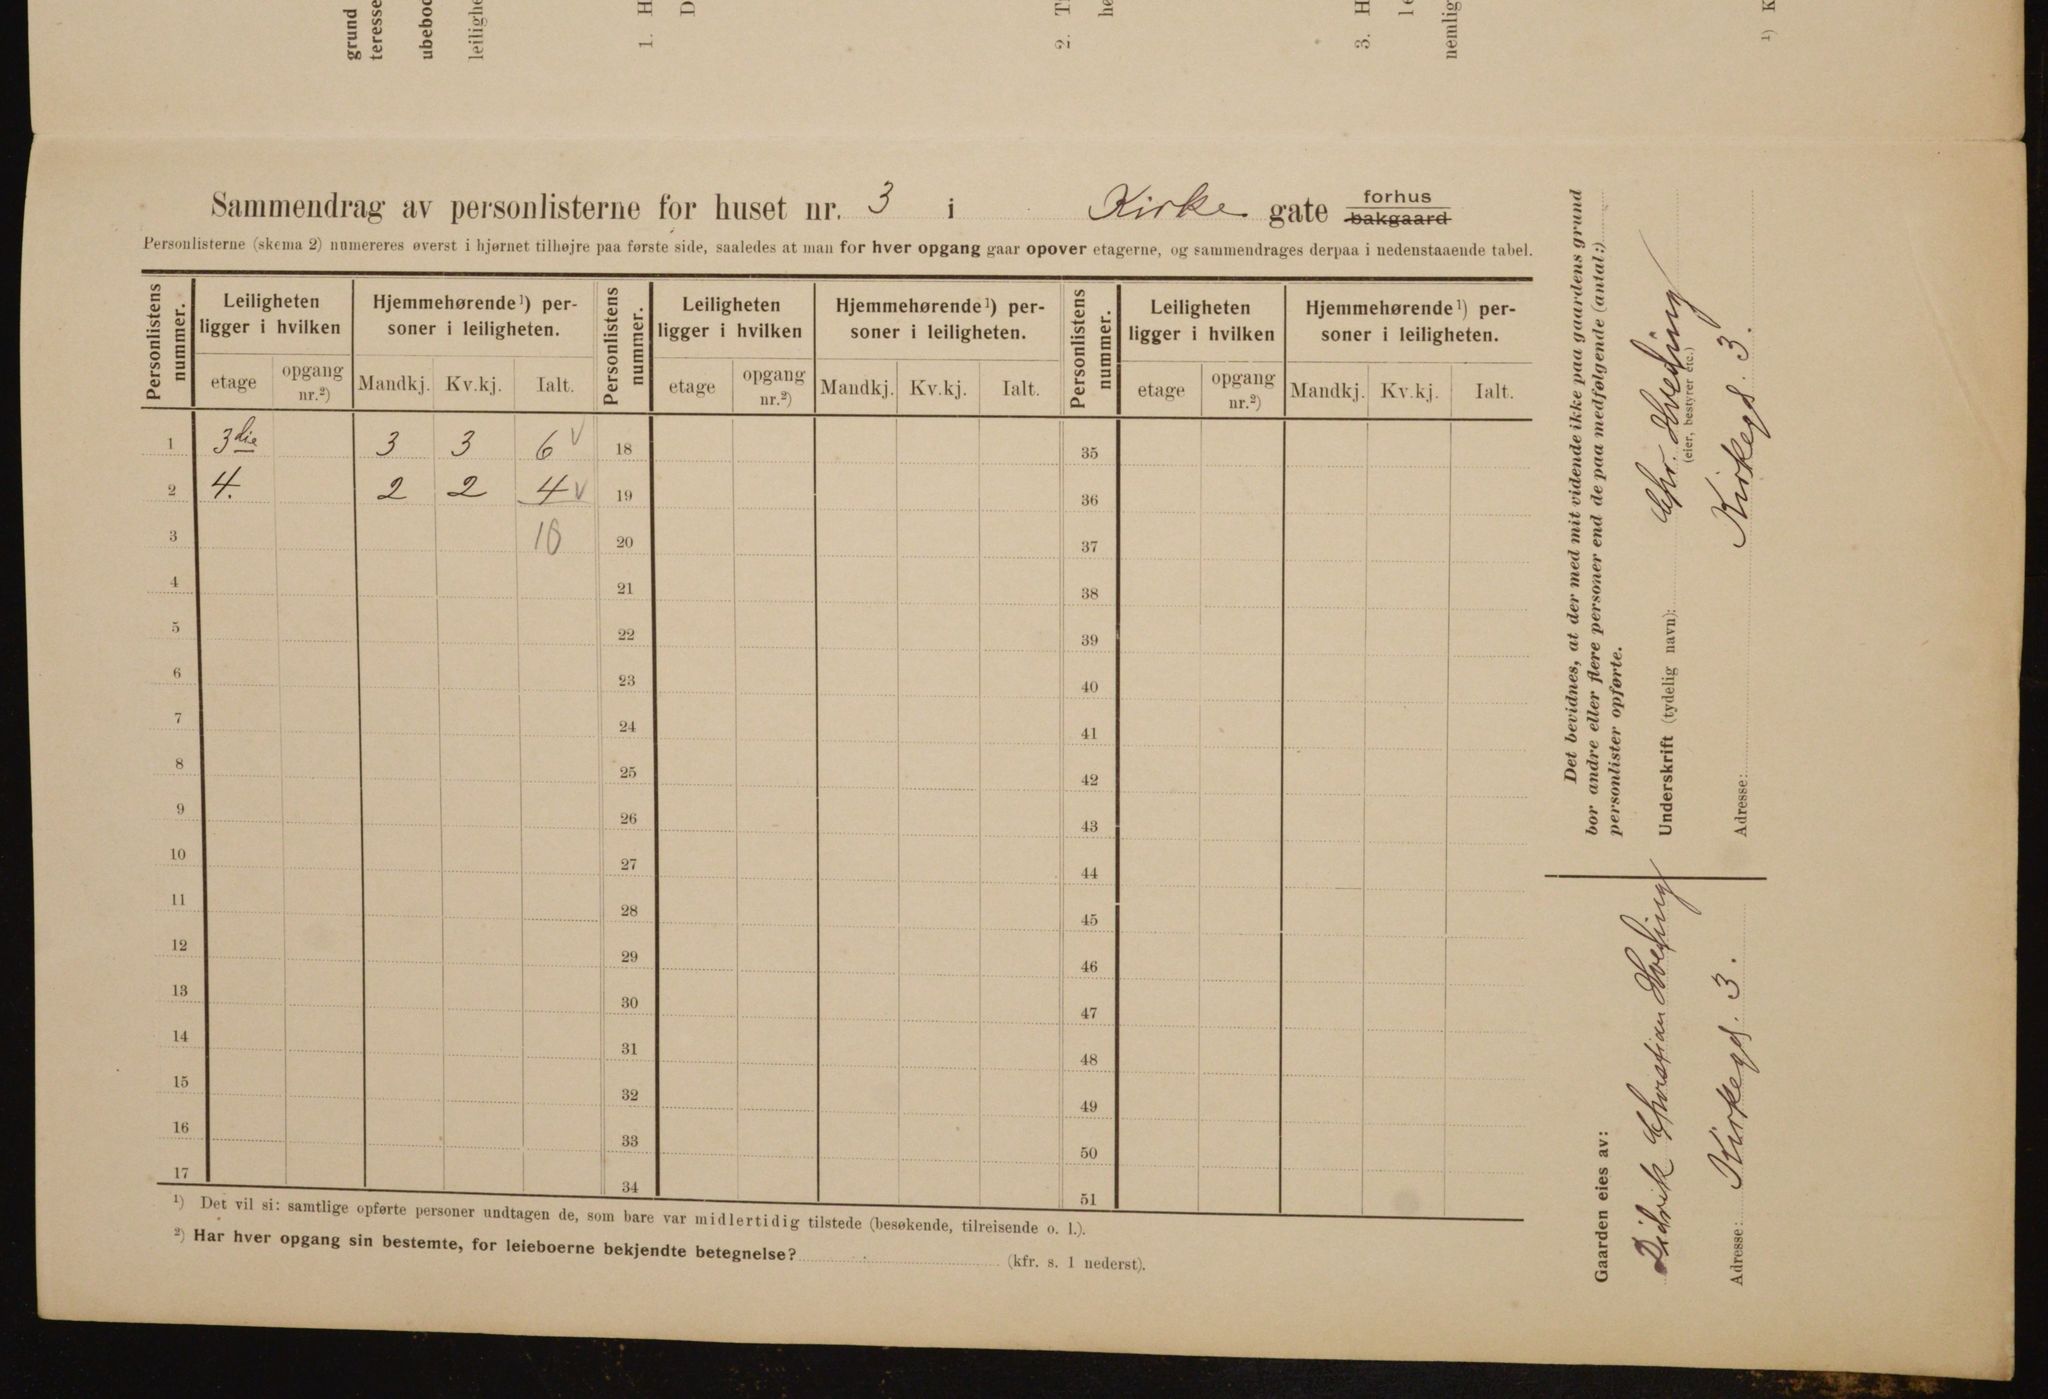 grund
teresse
ubeboe
leilighe
1. H
D
2. T
he
3. H
le
nemlig
¹) K
Sammendrag av personlisterne for huset nr. 3 i Kirke gate forhus ~~bakgaard~~
Personlisterne (skema 2) numereres øverst i hjørnet tilhøjre paa første side, saaledes at man for hver opgang gaar opover etagerne, og sammendrages derpaa i nedenstaaende tabel.
Personlistens nummer. | Leiligheten ligger i hvilken | Hjemmehørende¹) personer i leiligheten. | Personlistens nummer. | Leiligheten ligger i hvilken | Hjemmehørende¹) personer i leiligheten. | Personlistens nummer. | Leiligheten ligger i hvilken | Hjemmehørende¹) personer i leiligheten.
etage | opgang nr.²) | Mandkj. | Kv.kj. | Ialt. | etage | opgang nr.²) | Mandkj. | Kv.kj. | Ialt. | etage | opgang nr.²) | Mandkj. | Kv.kj. | Ialt.
1 3die 3 3 6 v 18 35
2 4. 2 2 4 v 19 36
3 10 20 37
4 21 38
5 22 39
6 23 40
7 24 41
8 25 42
9 26 43
10 27 44
11 28 45
12 29 46
13 30 47
14 31 48
15 32 49
16 33 50
17 34 51
¹) Det vil si: samtlige opførte personer undtagen de, som bare var midlertidig tilstede (besøkende, tilreisende o. l.).
²) Har hver opgang sin bestemte, for leieboerne bekjendte betegnelse? (kfr. s. 1 nederst).
Det bevidnes, at der med mit vidende ikke paa gaardens grund
bor andre eller flere personer end de paa medfølgende (antal:)
personlister opførte.
Underskrift (tydelig navn): Chr. Hveding
(eier, bestyrer etc.)
Adresse: Kirkegd. 3.
Gaarden eies av:
Didrik Christian Hveding
Adresse: Kirkegd. 3.